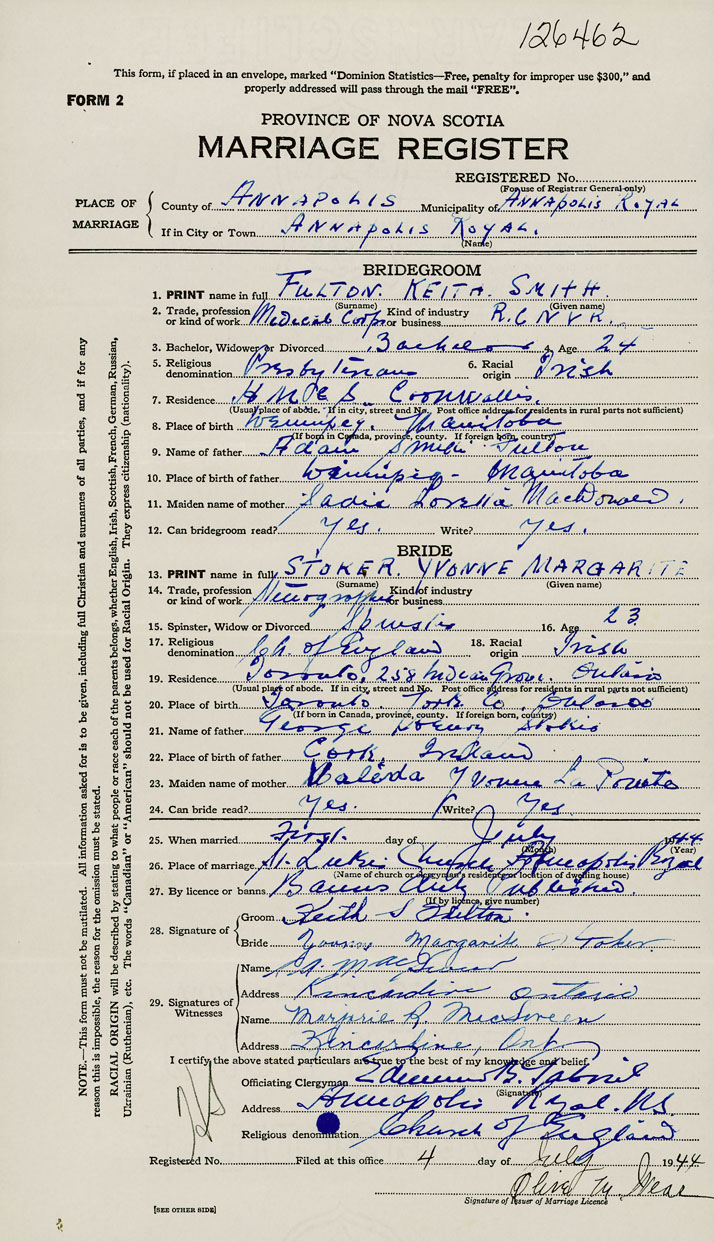 126462
This form, if placed in an envelope, marked "Dominion Statistics—Free, penalty for improper use $300," and
properly addressed will pass through the mail "FREE".
FORM 2
PROVINCE OF NOVA SCOTIA
MARRIAGE REGISTER
REGISTERED No.
(For use of Registrar General only)
PLACE OF MARRIAGE
County of ANNAPOLIS Municipality of ANNAPOLIS ROYAL
If in City or Town ANNAPOLIS ROYAL.
(Name)
BRIDEGROOM
1. PRINT name in full FULTON. KEITH. SMITH.
(Surname) (Given name)
2. Trade, profession or kind of work Medical Corps Kind of industry or business R.C.N.V.R.
3. Bachelor, Widower or Divorced Bachelor 4. Age 24
5. Religious denomination Presbyterian 6. Racial origin Irish
7. Residence H M C S. Cornwallis.
(Usual place of abode. If in city, street and No. Post office address for residents in rural parts not sufficient)
8. Place of birth Manitoba
(If born in Canada, province, county. If foreign born, country)
9. Name of father Adam Smith Fulton
10. Place of birth of father Winnipeg - Manitoba
11. Maiden name of mother Sadie Loretta
12. Can bridegroom read? Yes. Write? Yes.
BRIDE
13. PRINT name in full STOKER. YVONNE MARGARITE
(Surname) (Given name)
14. Trade, profession or kind of work Kind of industry or business
15. Spinster, Widow or Divorced Spinster 16. Age 23
17. Religious denomination Ch. of England 18. Racial origin Irish
19. Residence Toronto, 258 Indian Grove. Ontario
(Usual place of abode. If in city, street and No. Post office address for residents in rural parts not sufficient)
20. Place of birth Toronto. York Co. Ontario
(If born in Canada, province, county. If foreign born, country)
21. Name of father George Henry
22. Place of birth of father Cork, Ireland
23. Maiden name of mother Yvonne La
24. Can bride read? Yes. Write? Yes.
25. When married First. day of July 1944
(Month) (Year)
26. Place of marriage St. Lukes Church Annapolis Royal
(Name of church or clergyman's residence or location of dwelling house)
27. By licence or banns Banns duly Published.
(If by licence, give number)
28. Signature of
Groom Keith S Fulton.
Bride Yvonne Margarite Stoker.
29. Signatures of Witnesses
Name
Address Kincardine Ontario
Name Marjorie R. MacSween
Address Kincardine, Ont.
I certify the above stated particulars are true to the best of my knowledge and belief.
Officiating Clergyman Edmund B.
(Signature)
Address Annapolis Royal. N.S.
Religious denomination Church of England
Registered No. Filed at this office 4 day of July 1944
Olive M.
Signature of Issuer of Marriage Licence
[SEE OTHER SIDE]
NOTE.—This form must not be mutilated. All information asked for is to be given, including full Christian and surnames of all parties, and if for any
reason this is impossible, the reason for the omission must be stated.
RACIAL ORIGIN will be described by stating to what people or race each of the parents belongs, whether English, Irish, Scottish, French, German, Russian,
Ukrainian (Ruthenian), etc. The words "Canadian" or "American" should not be used for Racial Origin. They express citizenship (nationality).